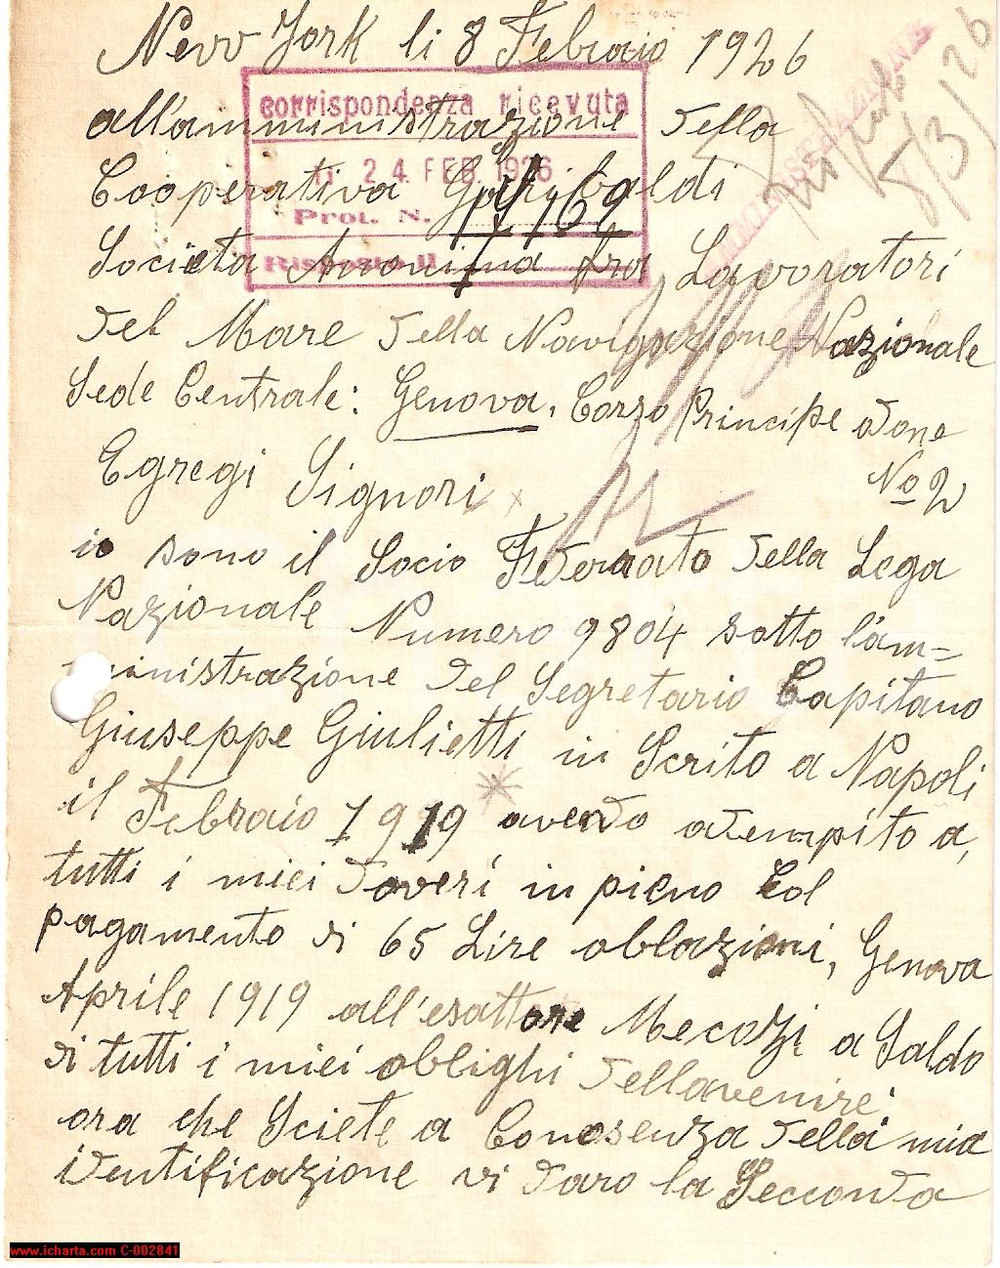 New York li 8 Febraio 1926
corrispondenza ricevuta
all'amministrazione della
il 24 FEB. 1926
Cooperativa Garibaldi
Prot. N.
Società Anonima fra Lavoratori
Risposto il
8/3/26
del Mare della Navigazione Nazionale
Sede Centrale: Genova, Corso Principe Odone
No 2
Egregi Signori
io sono il Socio Federato della Lega
Nazionale Numero 9804 sotto l'am=
ministrazione del Segretario Capitano
Giuseppe Giulietti in Scrito a Napoli
il Febraio 1919 avendo adempito a,
tutti i miei doveri in pieno Col
pagamento di 65 Lire oblazioni, Genova
Aprile 1919 all'esattore Mecozzi a Saldo
di tutti i miei oblighi dellavenire.
ora che Sciete a Conosenza della mia
identificazione vi daro la Secconda
www.icharta.com C-002841